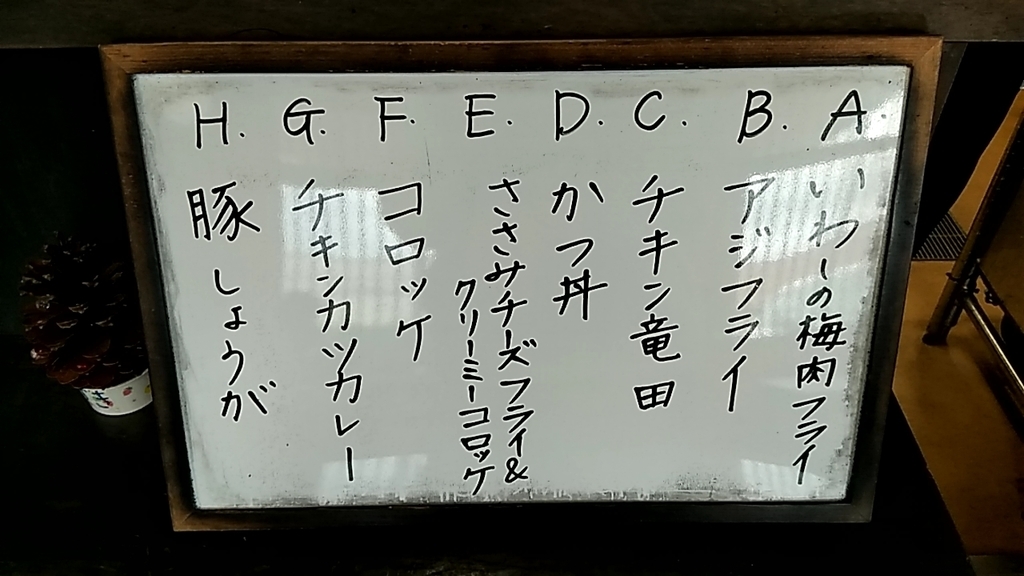 A. いわしの梅肉フライ
B. アジフライ
C. チキン竜田
D. かつ丼
E. ささみチーズフライ&
クリーミーコロッケ
F. コロッケ
G. チキンカツカレー
H. 豚しょうが